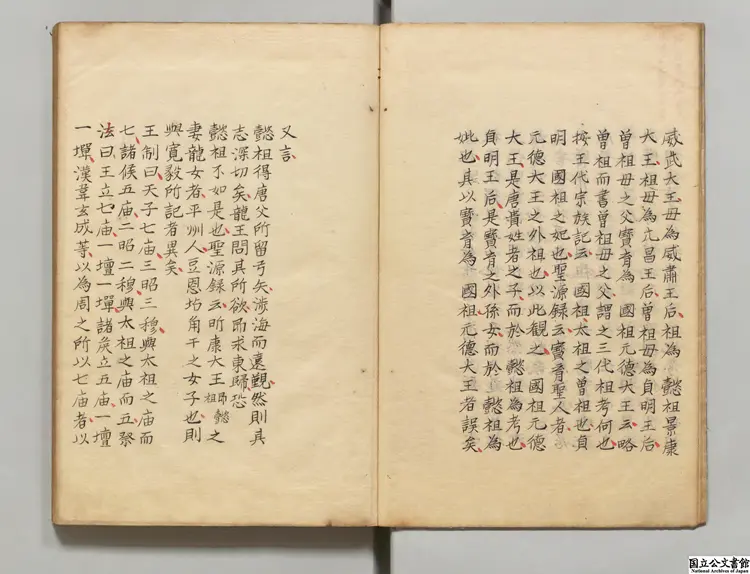 威武大王母為威肅王后祖為 懿祖景康
大王祖母為元昌王后曾祖母為貞明王后
曾祖母之父寶育為 國祖元德大王云略
曾祖而書曾祖母之父謂之三代祖考何也
按王代宗族記云國祖太祖之曾祖也貞
明 國祖之妃也聖源録云寶育聖人者
元德大王之外祖也以此觀之 國祖元德
大王是唐貴姓者之子而於 懿祖為考也
貞明王后是寶育之外孫女而於 懿祖為
妣也其以寶育為 國祖元德大王者誤矣
又言
懿祖得唐父所留弓矢渉海而遠覲然則其
志深切矣龍王問其所欲即求東歸恐
懿祖不如是也聖源録云昕康大王即懿祖之
妻龍女者平州人豆恩坫角干之女子也則
與寬毅所記者異矣
王制曰天子七庙三昭三穆與太祖之庙而
七諸侯五庙二昭二穆與太祖之庙而五祭
法曰王立七庙一壇一墠諸矦立五庙一壇
一墠漢韋玄成等以為周之所以七庙者以
国立公文書館
National Archives of Japan